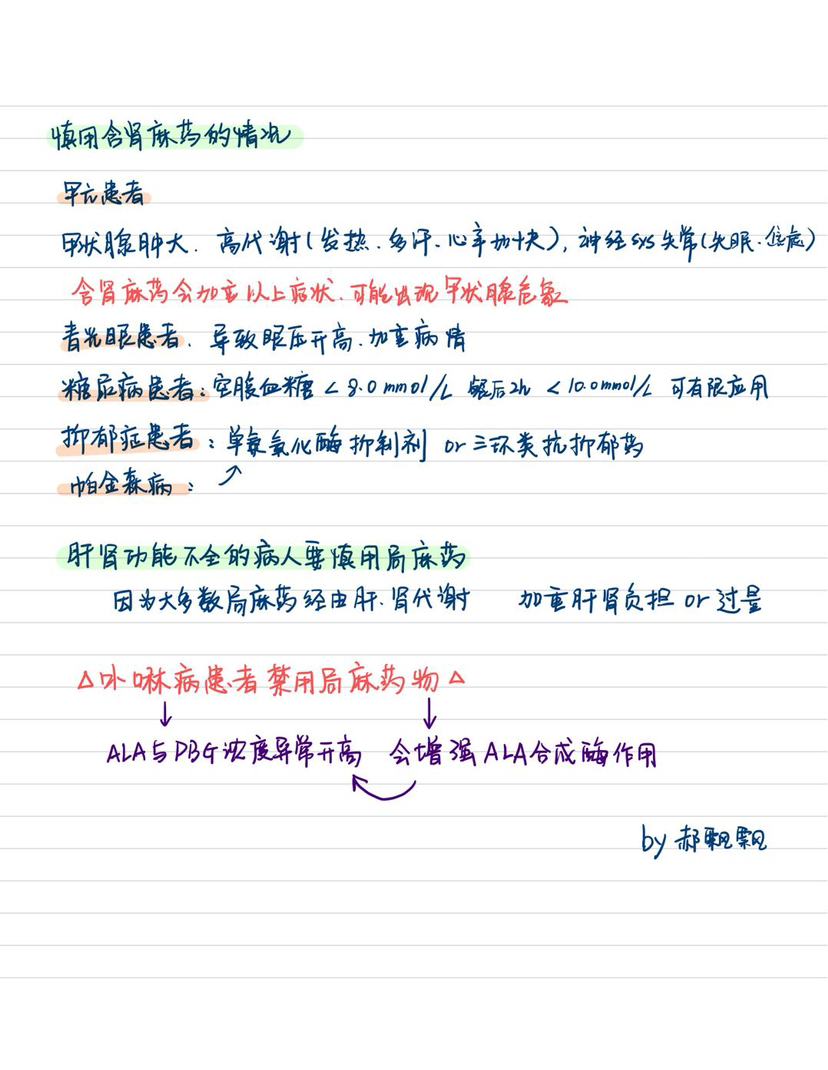 慎用含肾麻药的情况
甲亢患者
甲状腺肿大、高代谢(发热、多汗、心率加快),神经sys失常(失眠、
含肾麻药会加重以上症状、可能出现甲状腺危象
青光眼患者、导致眼压升高、加重病情
糖尿病患者:空腹血糖<8.0mmol/L 餐后2h <10.0mmol/L 可有限应用
抑郁症患者:单氨氧化酶抑制剂 or 三环类抗抑郁药
帕金森病:
肝肾功能不全的病人要慎用局麻药
因为大多数局麻药经由肝、肾代谢 加重肝肾负担 or 过量
△卟啉病患者禁用局麻药物△
ALA与PBG浓度异常升高 会增强ALA合成酶作用
by 郝飘飘